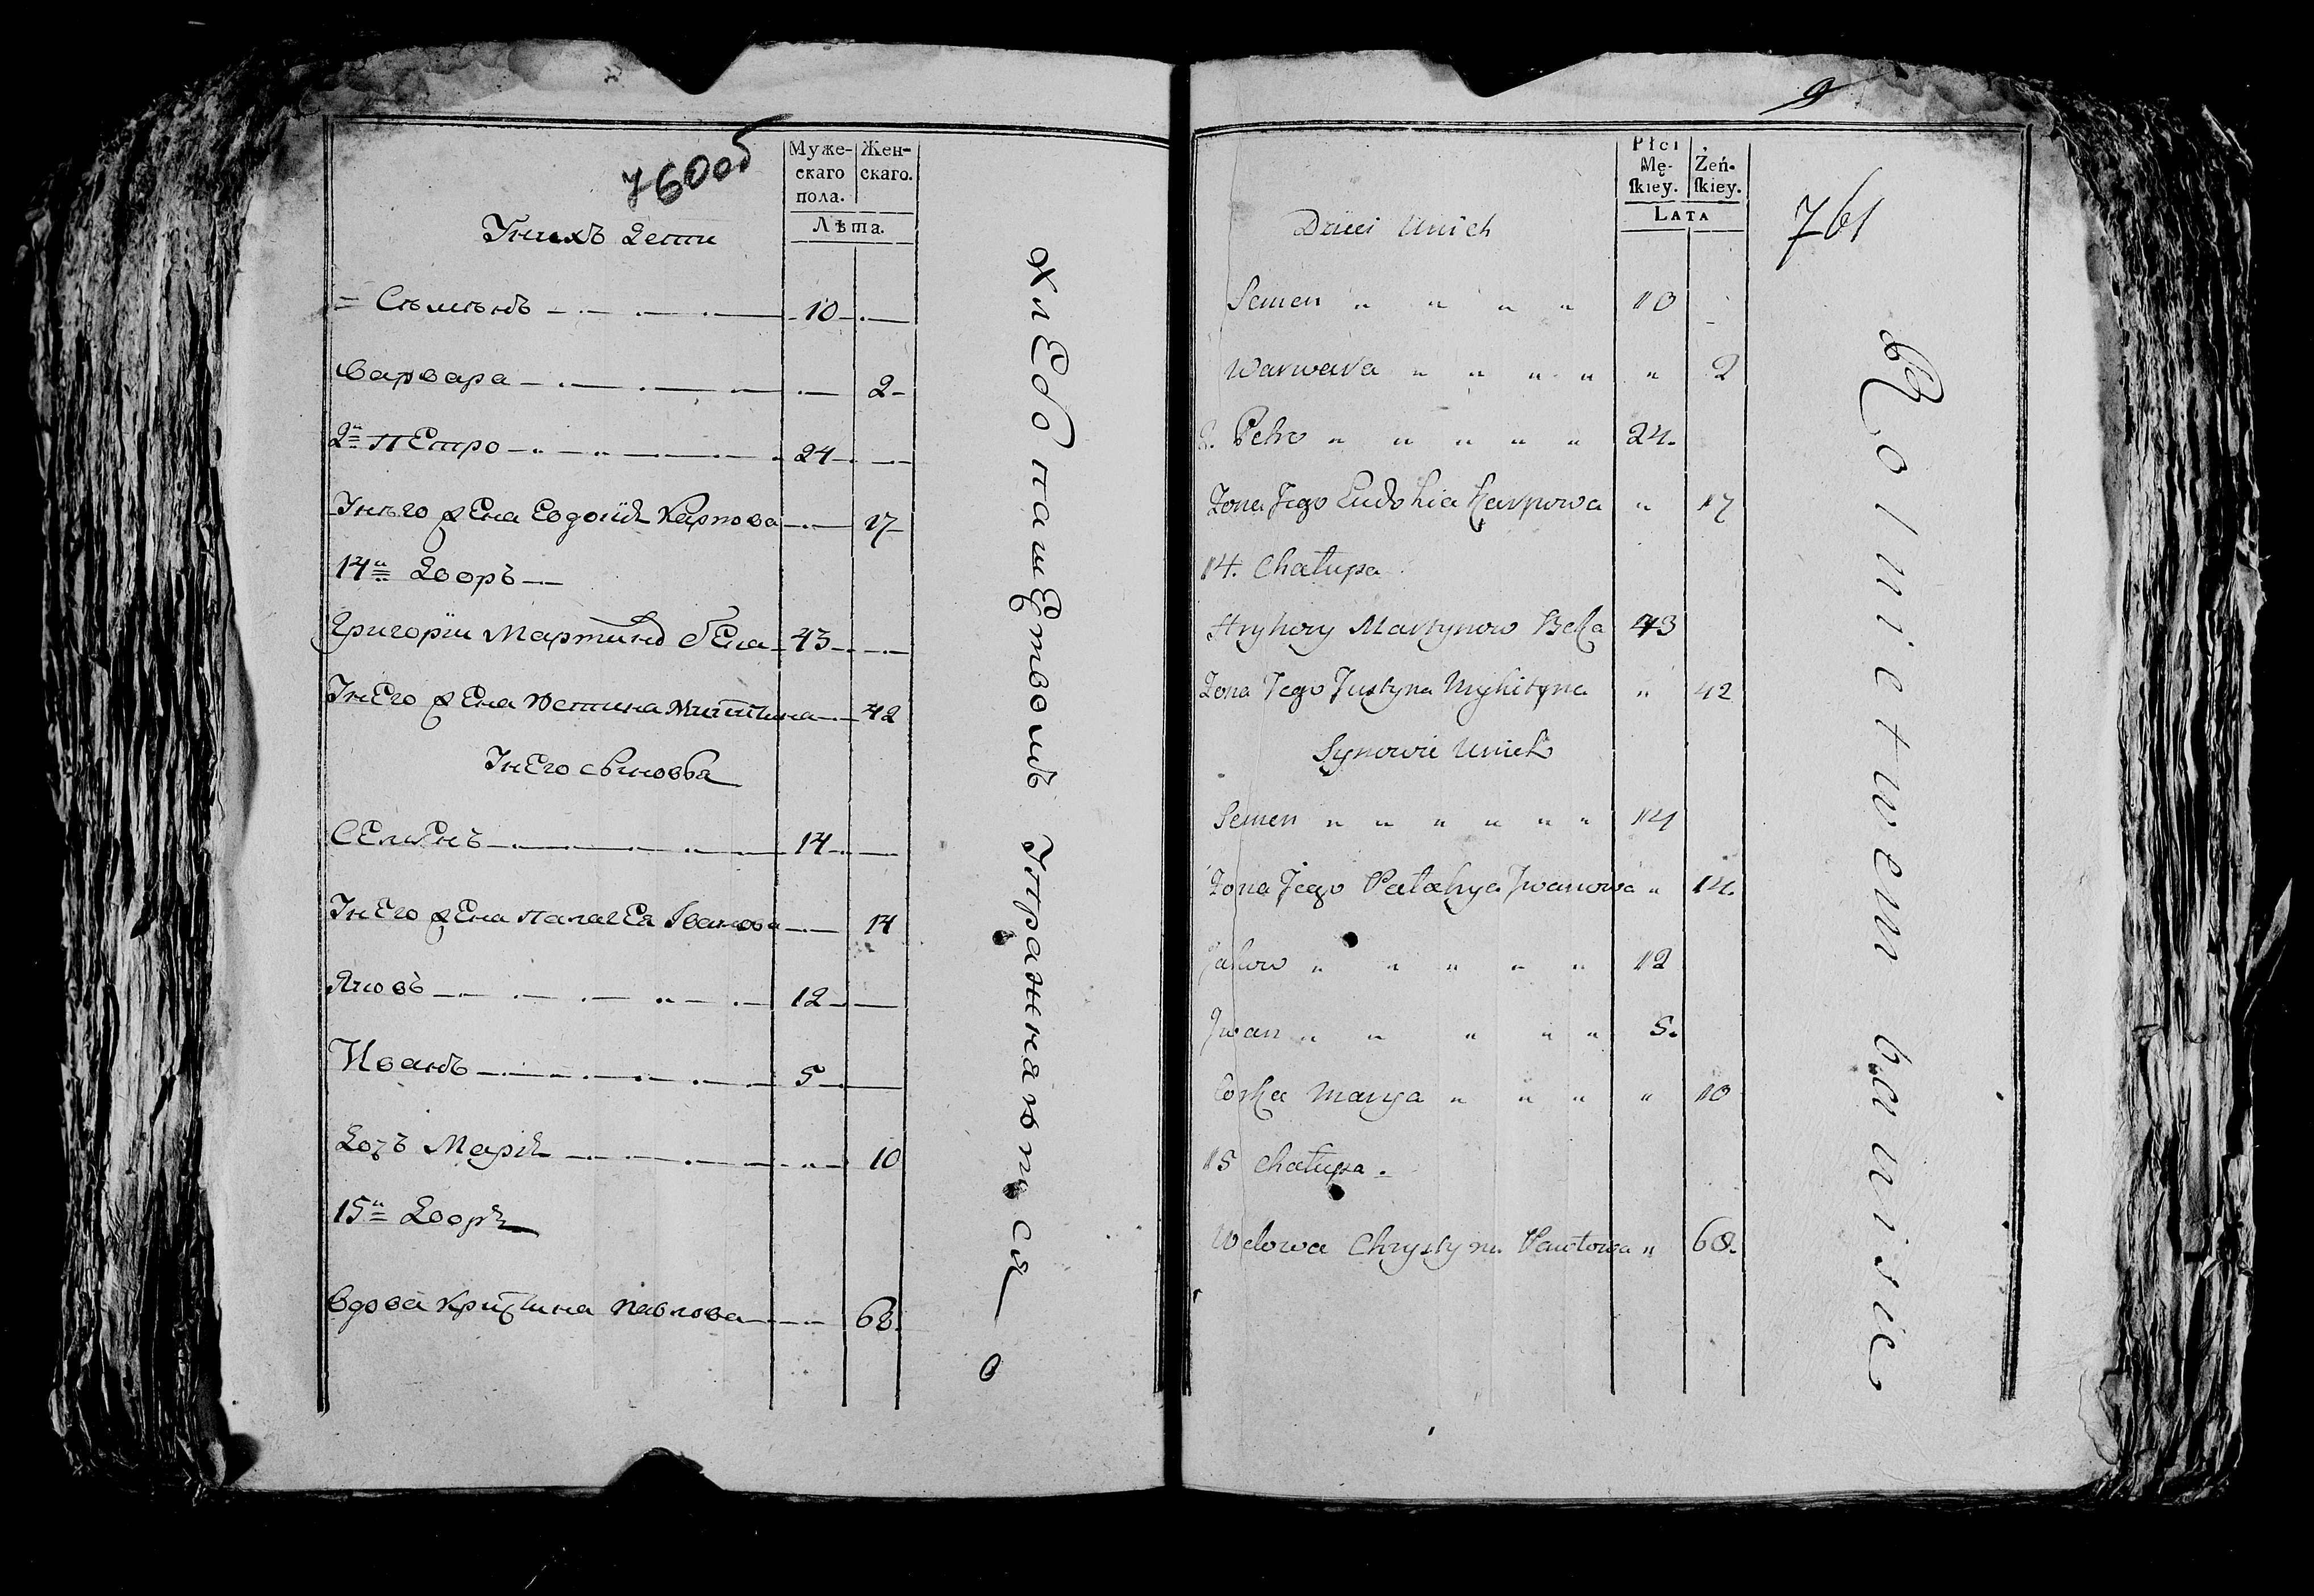 760об
Муже-
скаго
пола.
Жен-
скаго.
Лѣта.
Унихъ Дети
= Сѣмѣнъ 10
Варвара 2
2й Петро 24
Унѣго жена Евдокия Карпова 17
14й Дворъ
Григорїи Мартиновъ бела 43
Унего жена Юстина Микитина 42
Унего сыновья
Семенъ 14
Унего жена Палагея Иванова 14
Яковъ 12
Иванъ 5
Дочъ Мария 10
15й Дворъ
Вдова Христина Павлова 68.
хлебопашетвомъ Упражняются
9
761
Płci
Mę-
ſkiey.
Żeń-
ſkiey.
LATA
Dzieci Unich
Semen " " " " 10
Warwara " " " " " 2
2. Petro " " " " " 24.
Zona Jego Eudokia Karpowa " 17
14. Chałupa
Hryhory Martynow Beła 43
Zona Jego Justyna Mykityna " 42
Synowie Unich
Semen " " " " " " 14
Zona Jego Palahya Jwanowa " 14.
Jakow " " " " " 12
Jwan " " " " " 5.
Corka Marya " " " " 10
15 Chałupa.
Wdowa Chrystyna Pawłowa " 68.
Rolnictwem bawisie